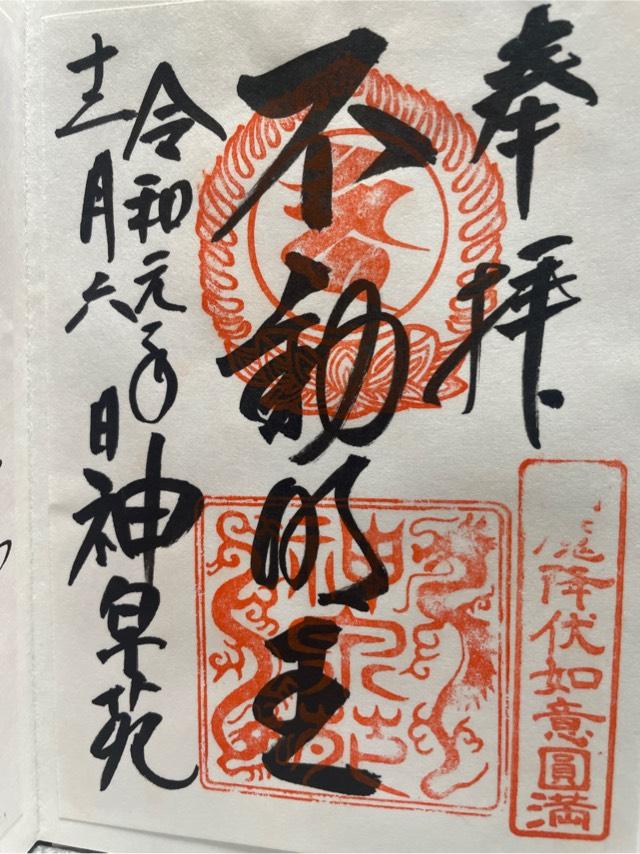 奉拝
魔降伏如意圓満
不動明王
令和元年
十二月六日
神泉苑